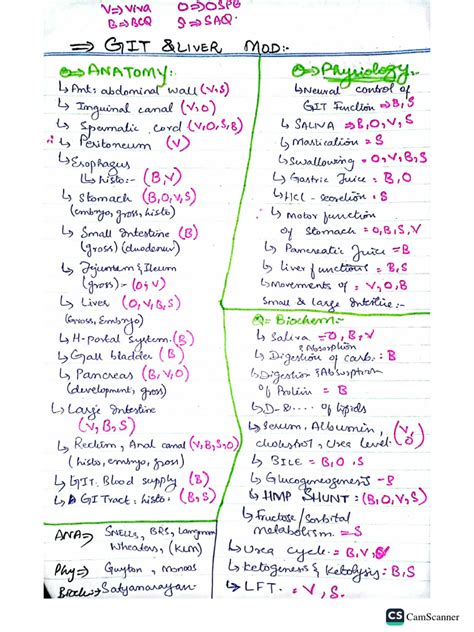 V⇒Viva O⇒OSPE
B⇒BCQ S⇒SAQ.
⇒ GIT & LIVER MOD:-
⇒ ANATOMY:-
↳ Ant: abdominal wall (V,S)
↳ Inguinal canal (V,O)
↳ Spermatic cord (V,O,S,B)
↳ Peritoneum (V)
↳ Esophagus
↳ histo:- (B,V)
↳ Stomach (B,O,V,S)
(embryo, gross, histo)
↳ Small Intestine (B)
(gross) (duodenum)
↳ Jejunum & Ileum
(gross) - (O,V)
↳ Liver (O,V,B,S)
(Gross, Embryo)
↳ H-portal System. (B)
↳ Gall bladder (B)
↳ Pancreas (B,V,O)
(development, gross)
↳ Large Intestine
(V,B,S)
↳ Rectum, Anal canal (V,B,S,O)
(histo, embryo, gross)
↳ GIT. Blood supply (B)
↳ GI Tract: histo. (B,S)
ANA⇒ SNELLS, BRS, Langman
Wheaters, (KLM)
Phy⇒ Guyton, Monoos
Bioch⇒ Satyanarayan-
⇒ Physiology:-
↳ Neural control of
GIT Function ⇒ B,S
↳ SALIVA ⇒ B,O,V,S
↳ Mastication = S
↳ Swallowing = O,V,B,S
↳ Gastric Juice = B,O
↳ HCl - secretion = S
↳ Motor function
of Stomach = O,B,S,V
↳ Pancreatic Juice = B
↳ Liver functions = B,S
↳ Movements of = V,O,B
Small & large Intestine:-
Q= Biochem:-
↳ Saliva = O,B,V
& Absorption
↳ Digestion of carb: = B
↳ Digestion & Absorption
of Protein = B
↳ D- &---- of lipids
↳ Serum, Albumin, (V,O)
cholestrol, Urea level.
↳ BILE = B,O,S
↳ Glucogenogenesis - S
↳ HMP SHUNT = (B,O,V,S)
↳ Fructose/Sorbital
metabolism = S
↳ Urea Cycle = B,V,
↳ Ketogenesis & Ketolysis = B,S
↳ LFT. = V,S.
CS CamScanner